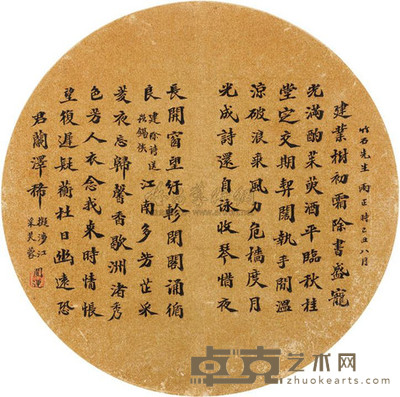 竹石先生雨正時己丑八月
建業樹初霜除書盛寵
光滿酌茱萸酒平臨秋桂
堂定交期契闊執手閒溫
涼破浪乘風力危檣度月
光成詩還自詠收琴惜夜
長開窗望行軫閉閣誦循
良 建除詩送錫侯 江南多芳芷采
菱夜忘歸馨香歇洲渚秀
色若人衣念我來時情悵
望復遲疑蘅杜日幽遠恐
君蘭澤稀 擬涉江采芙蓉 闓運
卓克艺术网
zhuokearts.com